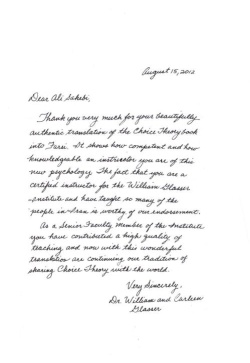 August 15, 2012
Dear Ali Sahebi,
Thank you very much for your beautifully
authentic translation of the Choice Theory book
into Farsi. It shows how competent and how
knowledgeable an instructor you are of this
new psychology. The fact that you are a
certified instructor for the William Glasser
Institute and have taught so many of the
people in Iran is worthy of our endorsement.
As a Senior Faculty Member of the Institute
you have contributed a high quality of
teaching, and now with this wonderful
translation are continuing our tradition of
sharing Choice Theory with the world.
Very Sincerely,
Dr. William and Carleen
Glasser